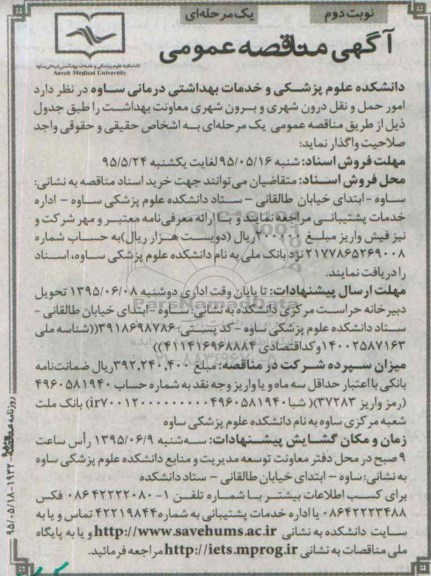 نوبت دوم
یک مرحله‌ای
آگهی مناقصه عمومی
دانشکده علوم پزشکی و خدمات بهداشتی درمانی ساوه
Saveh Medical University
دانشکده علوم پزشکی و خدمات بهداشتی درمانی ساوه در نظر دارد
امور حمل و نقل درون شهری و برون شهری معاونت بهداشت را طبق جدول
ذیل از طریق مناقصه عمومی یک مرحله‌ای به اشخاص حقیقی و حقوقی واجد
صلاحیت واگذار نماید:
مهلت فروش اسناد: شنبه ۹۵/۰۵/۱۶ لغایت یکشنبه ۹۵/۵/۲۴
محل فروش اسناد: متقاضیان می‌توانند جهت خرید اسناد مناقصه به نشانی:
ساوه - ابتدای خیابان طالقانی - ستاد دانشکده علوم پزشکی ساوه - اداره
خدمات پشتیبانی مراجعه نمایند و با ارائه معرفی‌نامه معتبر و مهر شرکت و
نیز فیش واریز مبلغ ریال (دویست هزار ریال) به حساب شماره
۲۱۷۷۸۶۵۲۶۹۰۰۸ نزد بانک ملی به نام دانشکده علوم پزشکی ساوه، اسناد
را دریافت نمایند.
مهلت ارسال پیشنهادات: تا پایان وقت اداری دوشنبه ۱۳۹۵/۰۶/۰۸ تحویل
دبیرخانه حراست مرکزی دانشکده به نشانی ساوه - ابتدای خیابان طالقانی -
ستاد دانشکده علوم پزشکی ساوه - کد پستی: ۳۹۱۸۶۹۸۷۸۶ ((شناسه ملی
۱۴۰۰۲۵۸۷۱۶۳ و کد اقتصادی ۴۱۱۴۱۶۹۶۸۸۸۴))
میزان سپرده شرکت در مناقصه: مبلغ ۳۹۲,۲۴۰,۴۰۰ ریال ضمانت‌نامه
بانکی با اعتبار حداقل سه ماه و یا واریز وجه نقد به شماره حساب ۴۹۶۰۵۸۱۹۴۰
(رمز واریز ۳۷۲۸۳) (شبا ir۷۰۰۱۲۰۰۰۰۰۰۰۰۰۰۴۹۶۰۵۸۱۹۴۰) بانک ملت
شعبه مرکزی ساوه به نام دانشکده علوم پزشکی ساوه
زمان و مکان گشایش پیشنهادات: سه‌شنبه ۱۳۹۵/۰۶/۹ رأس ساعت
۹ صبح در محل دفتر معاونت توسعه مدیریت و منابع دانشکده علوم پزشکی ساوه
به نشانی: ساوه - ابتدای خیابان طالقانی - ستاد دانشکده
برای کسب اطلاعات بیشتر با شماره تلفن ۱-۰۸۶۴۲۲۲۲۰۸۰ فکس
۰۸۶۴۲۲۲۳۴۸۸ یا اداره خدمات پشتیبانی به شماره ۴۲۲۱۹۸۴۴ تماس و یا به
سایت دانشکده به نشانی http://www.savehums.ac.ir و یا به پایگاه
ملی مناقصات به نشانی http://iets.mprog.ir مراجعه فرمائید.
روزنامه مناقصه ۱۹۳۲-۹۵/۰۵/۱۸
ParsNamadData